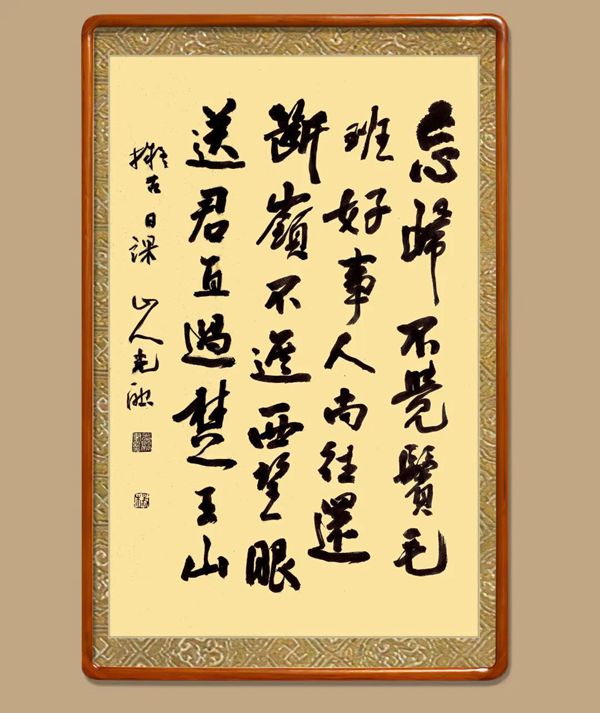 忘歸不覺鬢毛
班好事人尚往還
斷嶺不遮西望眼
送君直過楚王山
擬古日課 山人